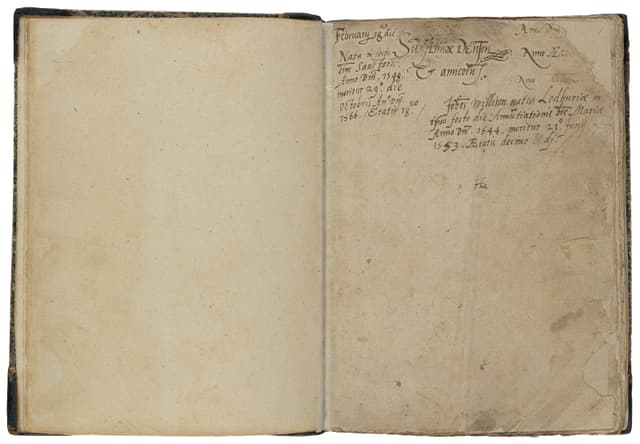 February 18 die
Nata in festo
Anno Dni 1548.
moritur 29° die
Octobris An° Dni
1566. / Etatis 18.
Su Annæ Densen
& amicorū
Anno Dni
Anno Æt
Anno
Johes Willison natus Ledburiæ in
ipso festo die Annūtiationis bte Mariæ
Anno Dni 1544. moritur 21° Juny
1553. Ætatis decimo